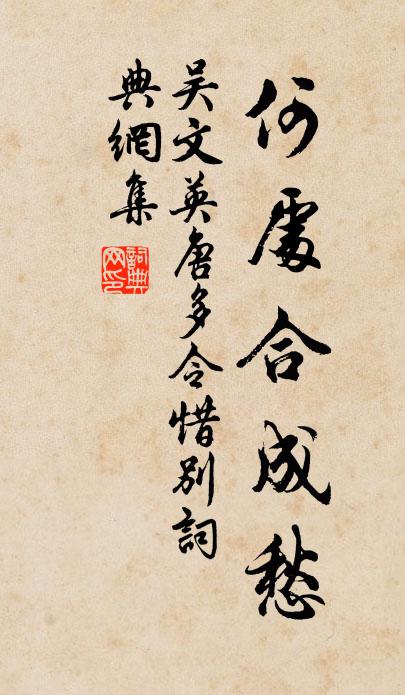 何處合成愁
吳文英唐多令惜別詞
典網集
詞典
网印